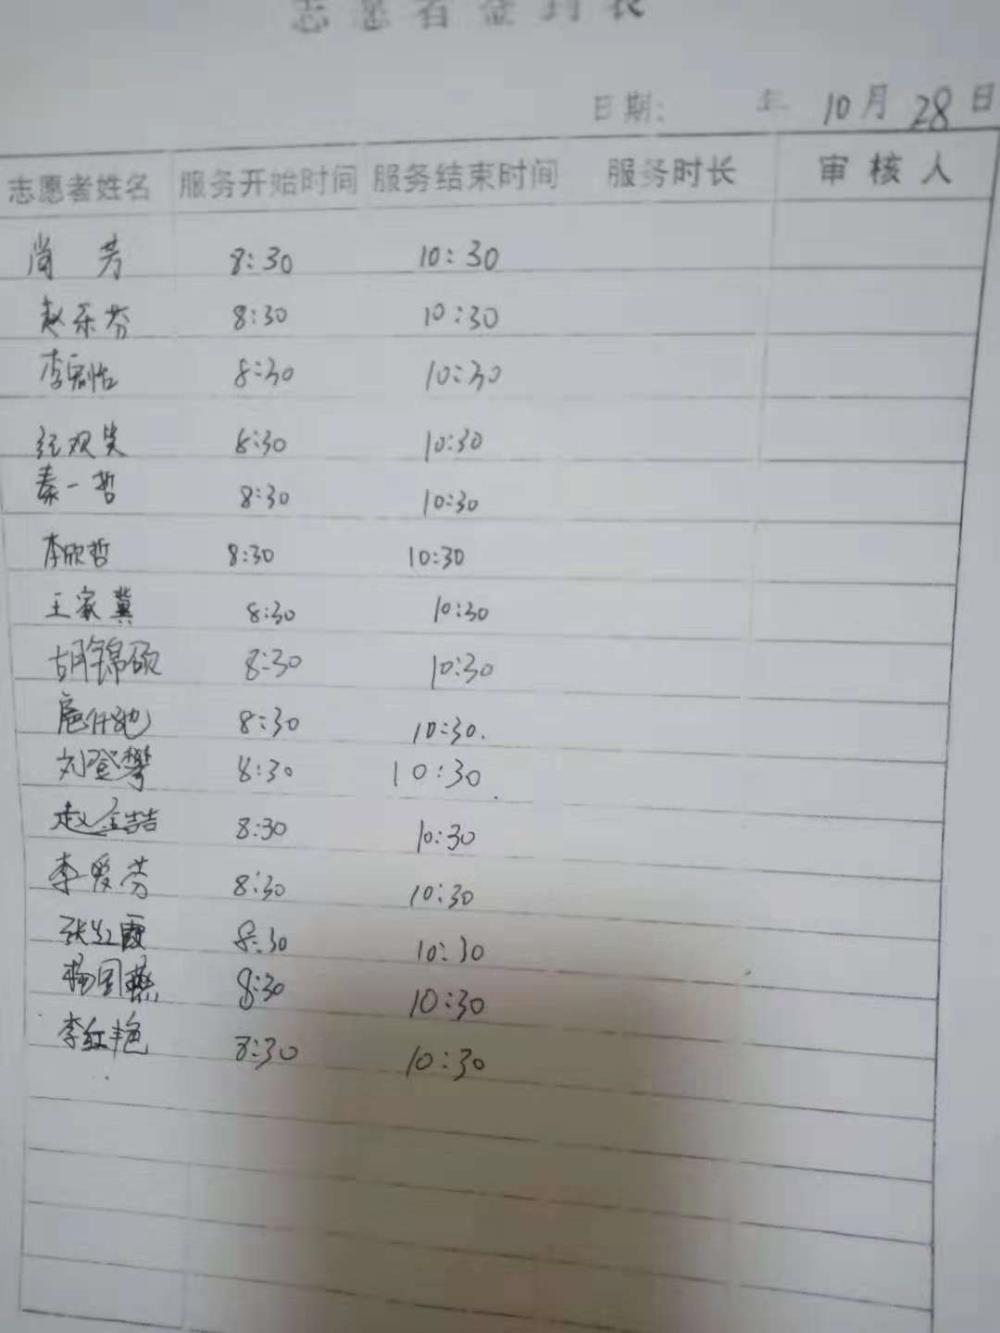 志愿者签到表
日期: 年 10月 28日
志愿者姓名 服务开始时间 服务结束时间 服务时长 审核人
尚芳 8:30 10:30
赵乐芬 8:30 10:30
李 8:30 10:30
8:30 10:30
秦一哲 8:30 10:30
李欣哲 8:30 10:30
王家冀 8:30 10:30
胡锦硕 8:30 10:30
8:30 10:30.
刘登攀 8:30 10:30
赵金喆 8:30 10:30
李爱芬 8:30 10:30
张红霞 8:30 10:30
杨国燕 8:30 10:30
李红艳 8:30 10:30